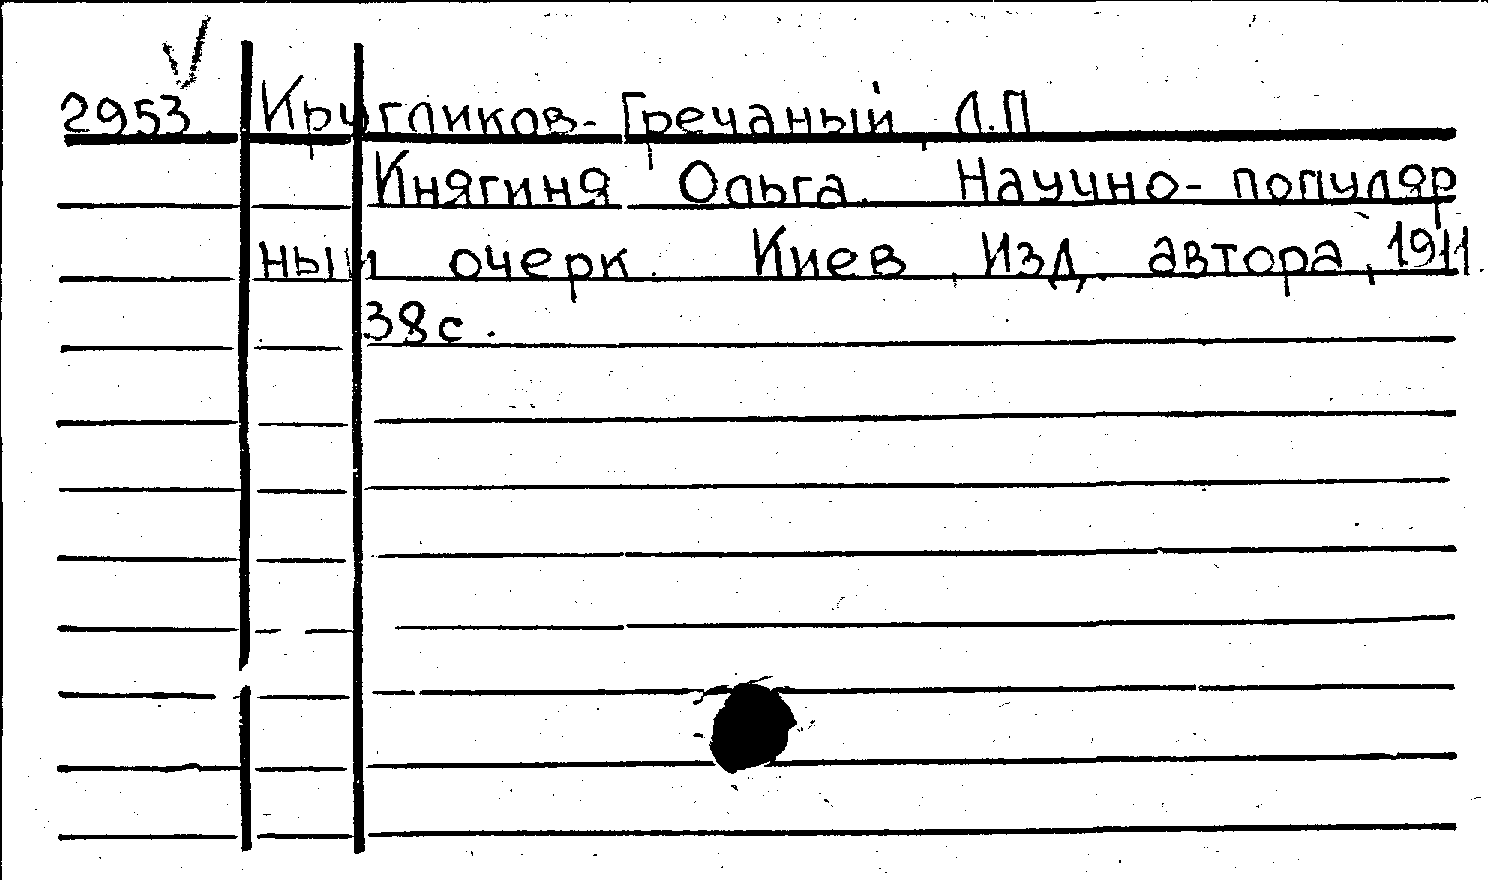 2953 Кругликов-Гречаный Л.П
Княгиня Ольга. Научно-популяр
ный очерк. Киев, Изд. автора, 1911.
38с.